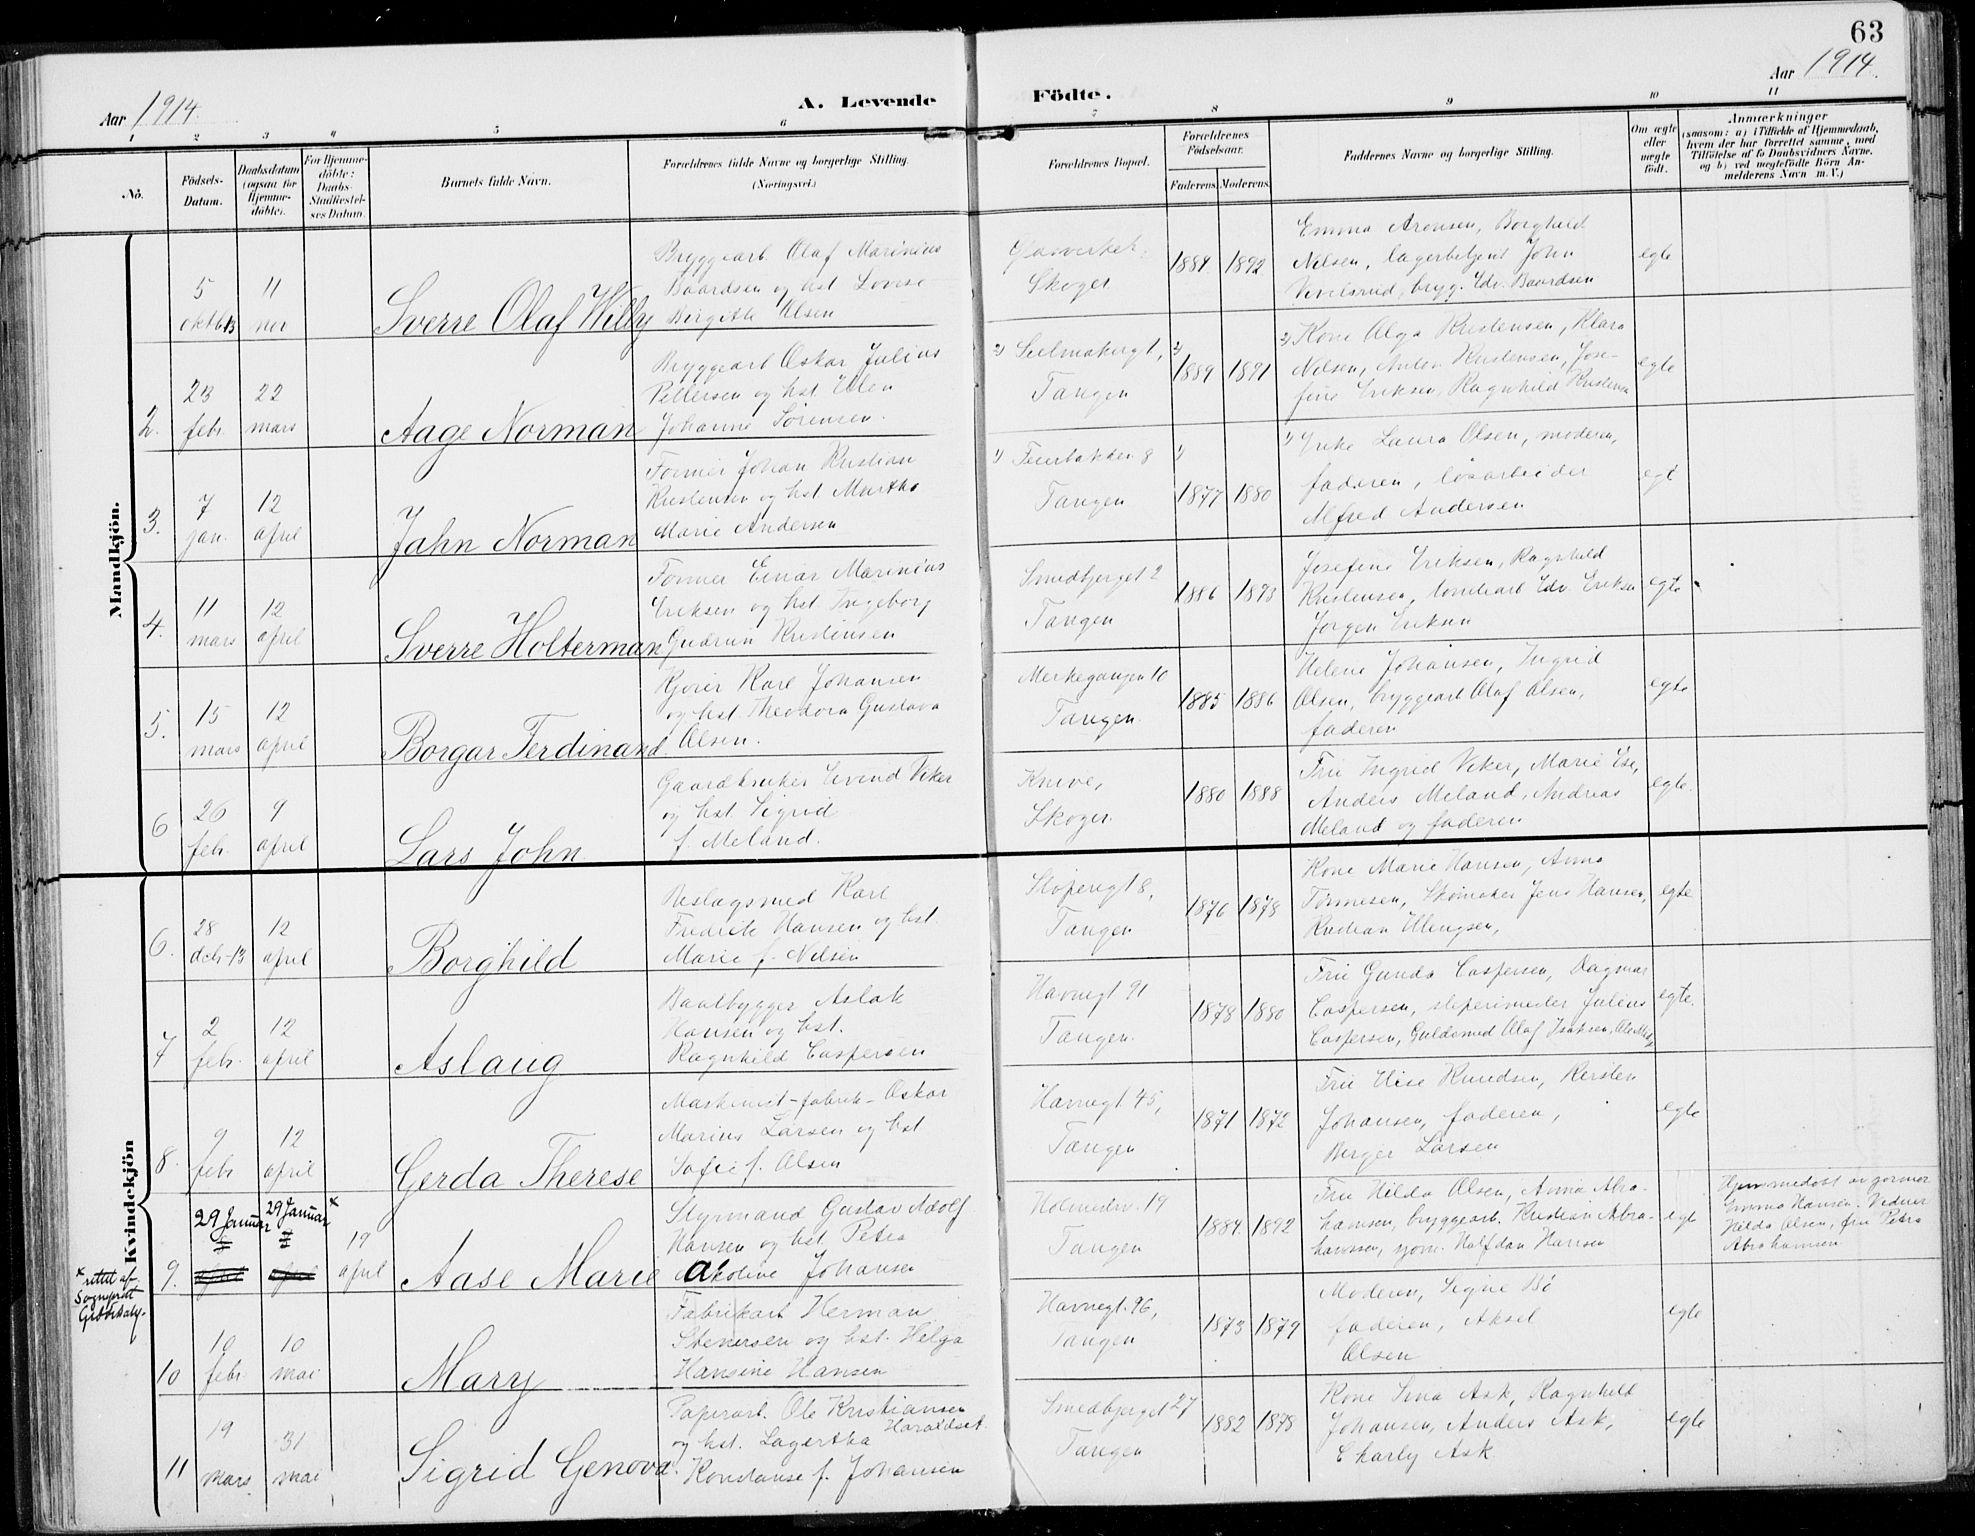 63
Aar 1914.
A. Levende
Födte.
Aar 1914.
1 2 3 4 5 6 7 8 9 10 11
No.
Födsels-
Datum.
Daabsdatum
(ogsaa for
Hjemme-
döbte).
For Hjemme-
döbte:
Daabs-
Stadfæstel-
ses Datum.
Barnets fulde Navn.
Forældrenes fulde Navne og borgerlige Stilling.
(Næringsvei.)
Forældrenes Bopæl.
Forældrenes
Födselsaar.
Faderens.
Moderens.
Faddernes Navne og borgerlige Stilling.
Om ægte
eller
uægte
født.
Anmærkninger
(saasom: a) i Tilfælde af Hjemmedaab,
hvem der har forrettet samme, med
Tilföielse af to Daabsvidners Navne,
og b) ved uægtefödte Börn An-
melderens Navn m. V.)
Mandkjön.
5
oktbr 13
11
Sverre Olaf Willy
Bryggearb. Olaf Marinius
Baardsen og hst. Lovise
Birgithe Olsen
Glasverket,
Skoger
1884 1892
Emma Aronsen, Borghild
Nilsen, lagerbetjent John
brygg. Edv. Baardsen
egte
2.
23
febr.
22
mars
Aage Norman
Bryggearb Oskar Julius
Pettersen og hst Ellen
Johanne Sörensen.
2) Seilmakergt,
Tangen
2)
1889 1891
2) Kone Olga Kristensen, Klara
Nilsen, Anton Kristensen, Jose-
fine Eriksen, Ragnhild Kristensen
egte
3.
7
jan.
12
april
Jahn Norman
Former Johan Kristian
Kristensen og hst Martha
Marie Andersen
1) Feierbakken 8
Tangen
1)
1877 1880
1) Enke Laura Olsen, moderen,
faderen, lösarbeider
Alfred Andersen
egt
4.
11
mars
12
april
Sverre Holterman
Former Einar Marinius
Eriksen og hst Ingeborg
Gudrun Kristensen
Smedbjerget 2
Tangen
1886 1893
Josefine Eriksen, Ragnhild
Kristensen, tomtearb Edv. Eriksen
Jörgen Eriksen
egte
5.
15
mars
12
april
Borgar Ferdinand
Kjörer Karl Johansen
og hst Theodora Gustava
f. Olsen.
Merkegangen 10
Tangen.
1885 1886
Helene Johansen, Ingrid
Olsen, bryggearb Olaf Olsen,
faderen
egte
6
26
febr.
9
april
Lars John
Gaardbruker Eivind Viker
og hst Sigrid
f. Meland.
Knive,
Skoger.
1880 1888
Fru Ingrid Viker, Marie
Anders Meland, Andreas
Meland og faderen
egte.
Kvindekjön
6.
28
debr-13
12
april
Borghild
Beslagsmed Karl
Fredrik Hansen og hst.
Marie f. Nilsen
Slöperigt 8,
Tangen
1876 1878
Kone Marie Hansen, Anna
Tönnesen, Skomaker Jens Hansen,
Kristian Ellingsen,
egte
7
2
febr.
12
april
Aslaug
Baatbygger Aslak
Hansen og hst.
Ragnhild Caspersen
Havnegt 91
Tangen.
1878 1880
Fru Gunda Caspersen, Dagmar
Caspersen, sliperimester Julius
Caspersen, Guldsmed Olaf Isaksen,
egte.
8.
9
febr
12
april
Gerda Therese
Maskinist-fabrik- Oskar
Marius Larsen og hst
Sofie f. Olsen
Havnegt. 45,
Tangen
1871 1872
Fru Elise Knudsen, Kirsten
Johansen, faderen,
Birger Larsen
egte
9.
29 Januar
29 Januar x
19
april
Aase Marie
Styrmand Gustav Adolf
Hansen og hst. Petra
Johansen
Tangen
1884 1892
Fru Hilda Olsen, Anna Abra-
hamsen, bryggearb. Kristian Abra-
hamsen, sjöm. Halfdan Hansen
egte
Hjemmedöbt av jormor
Emma Hansen. Vidner
Hilda Olsen, fru Petra
Abrahamsen
x rettet af
Sognepræst
10
10
febr
10
mai
Mary
Fabrikarb Herman
Stenersen og hst. Helga
Hansine Hansen
Havnegt. 96,
Tangen
1873 1879
Moderen, Signe Bö
faderen, Aksel
Olsen
egte
11
19
mars
31
mai
Sigrid Genova.
Papirarb. Ole Kristiansen
Haraldset
og hst. Lagertha
Konstanse f. Johansen
Smedbjerget 27
Tangen
1882 1878
Kone Ask, Ragnhild
Johansen, Anders Ask,
Charly Ask
egte